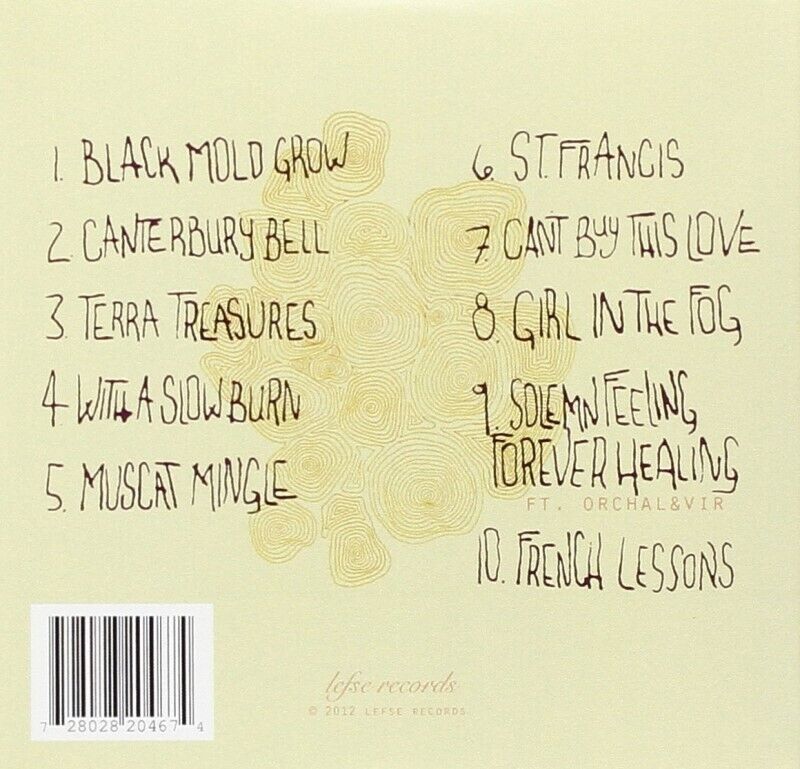 1. BLACK MOLD GROW
2. CANTERBURY BELL
3. TERRA TREASURES
4 WITH A SLOW BURN
5. MUSCAT MINGLE
6. ST. FRANCIS
7. CANT BUY THIS LOVE
8. GIRL IN THE FOG
9. SOLEMN FEELING
FOREVER HEALING
FT. ORCHAL&VIR
10. FRENCH LESSONS
7 28028 20467 4
lefse records
© 2012 LEFSE RECORDS